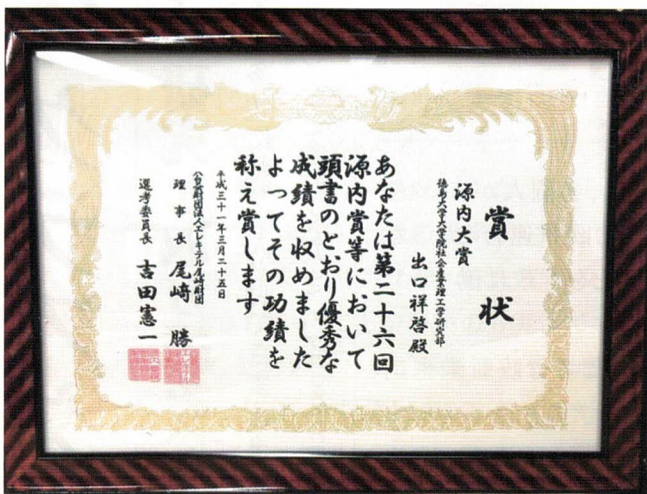 賞状
源内大賞
徳島大学大学院社会産業理工学研究部
出口祥啓殿
あなたは第二十六回
源内賞等において
頭書のとおり優秀な
成績を収めました
よってその功績を
称え賞します
平成三十一年三月二十五日
公益財団法人エレキテル尾崎財団
理事長 尾﨑 勝
選考委員長 吉田憲一